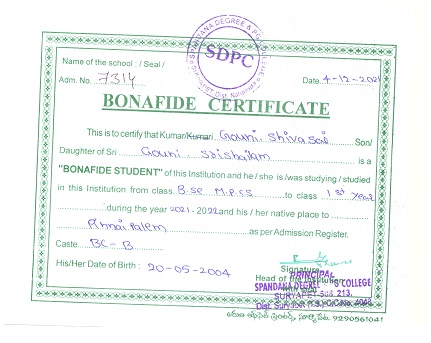 SPANDANA DEGREE & P.G. COLLEGE
SDPC
SURYAPET Dist. Nalgonda
Name of the school : / Seal /
Adm. No. 7314
Date 4-12-2021
BONAFIDE CERTIFICATE
This is to certify that Kumar/Kumari Gouni. Shiva Sai Son/
Daughter of Sri Gouni Srishailam is a
"BONAFIDE STUDENT" of this Institution and he / she is /was studying / studied
in this Institution from class B.Sc M.P.CS to class 1st Year
during the year 2021-2022 and his / her native place to
Pinnaipalem as per Admission Register.
Caste BC-B
His/Her Date of Birth : 20-05-2004
Signature
Head of the Institution
PRINCIPAL
SPANDANA DEGREE COLLEGE
SURYAPET-508 213.
Dist. Suryapet (T.S.) C.C.No. 4048
9290561041